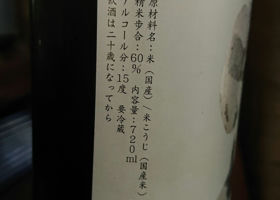 原材料名：米（国産）／米こうじ（国産米）
精米歩合：60％ 内容量：720ml
アルコール分：15度 要冷蔵
飲酒は二十歳になってから